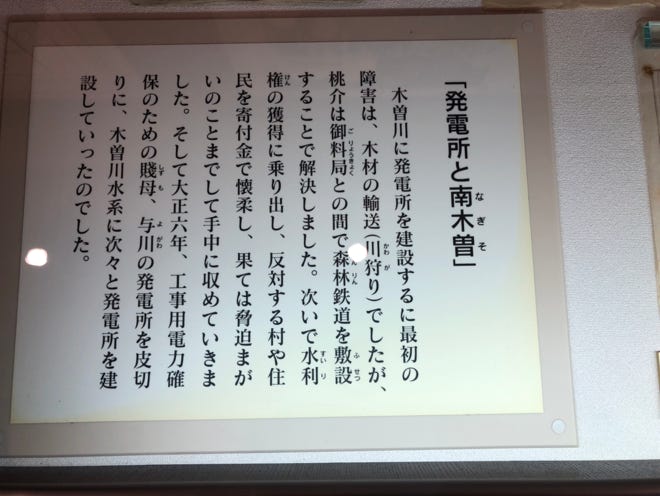 「発電所と南木曽」
木曽川に発電所を建設するに最初の
障害は、木材の輸送(川狩り)でしたが、
桃介は御料局との間で森林鉄道を敷設
することで解決しました。次いで水利
権の獲得に乗り出し、反対する村や住
民を寄付金で懐柔し、果ては脅迫まが
いのことまでして手中に収めていきま
した。そして大正六年、工事用電力確
保のための賤母、与川の発電所を皮切
りに、木曽川水系に次々と発電所を建
設していったのでした。